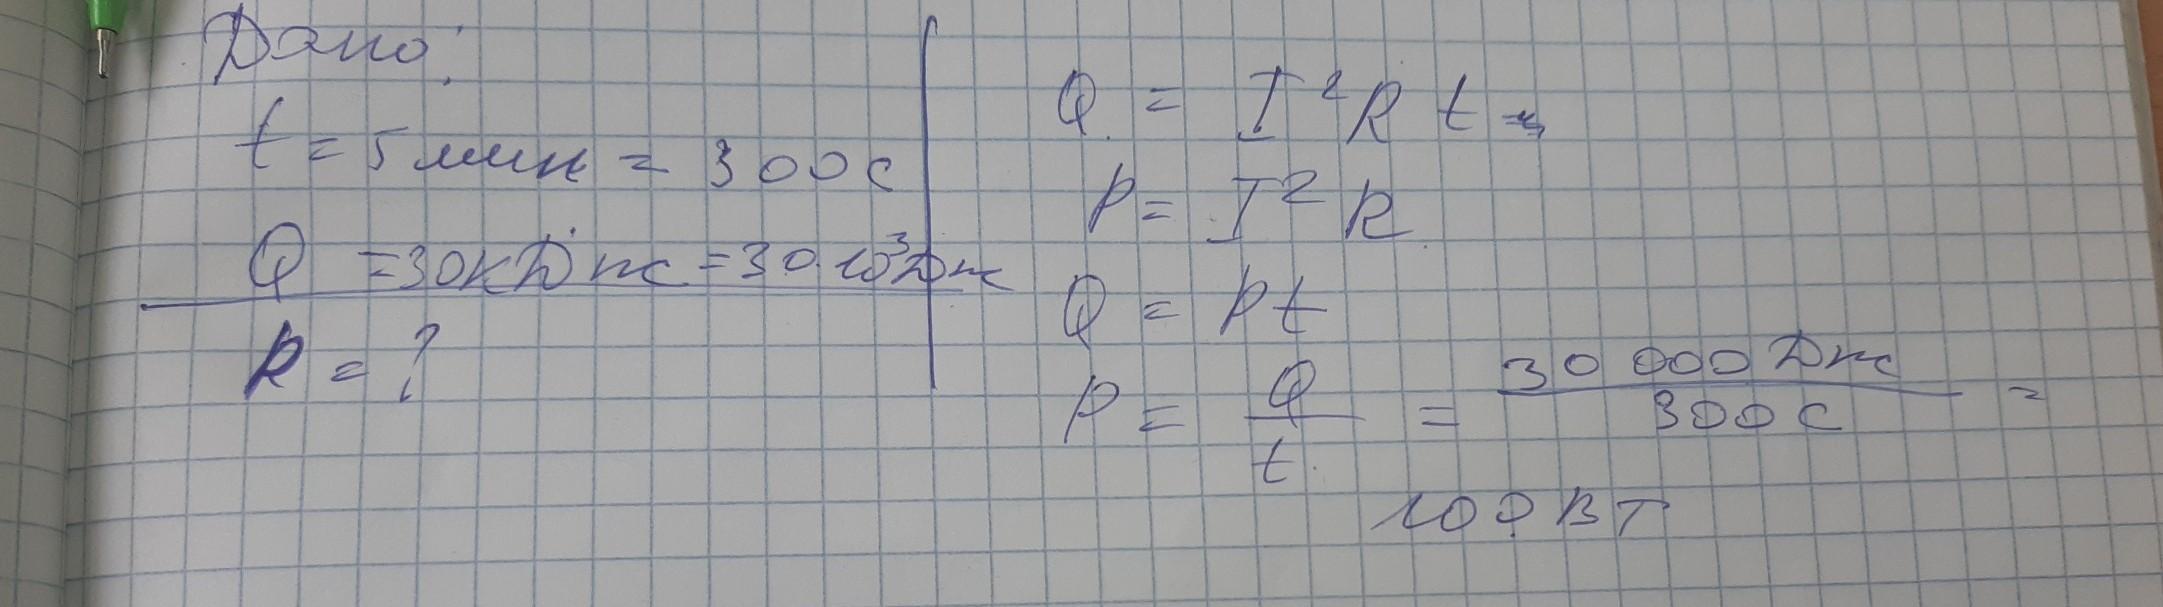 Дано:
t = 5 мин = 300 с
Q = 30 кДж = 30·10³ Дж
P = ?
Q = I² R t
P = I² R
Q = Pt
P = Q / t = 30 000 Дж / 300 с =
100 Вт